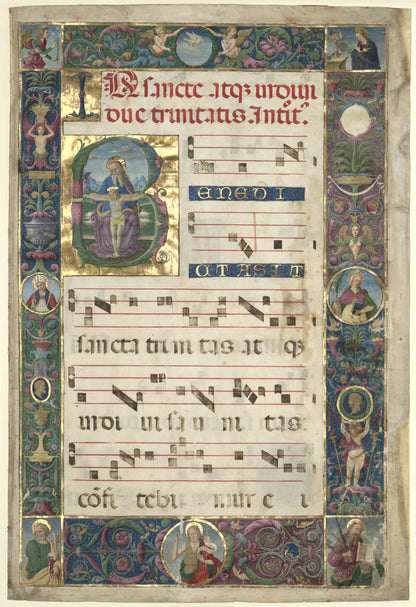 IN sancte atqʒ indiui
due trinitatis Introit⁹.
B
ENEDI
CTA SIT
sancta trinitas at qʒ
indi ui sa u ni tas:
cōfi tebi mur e i